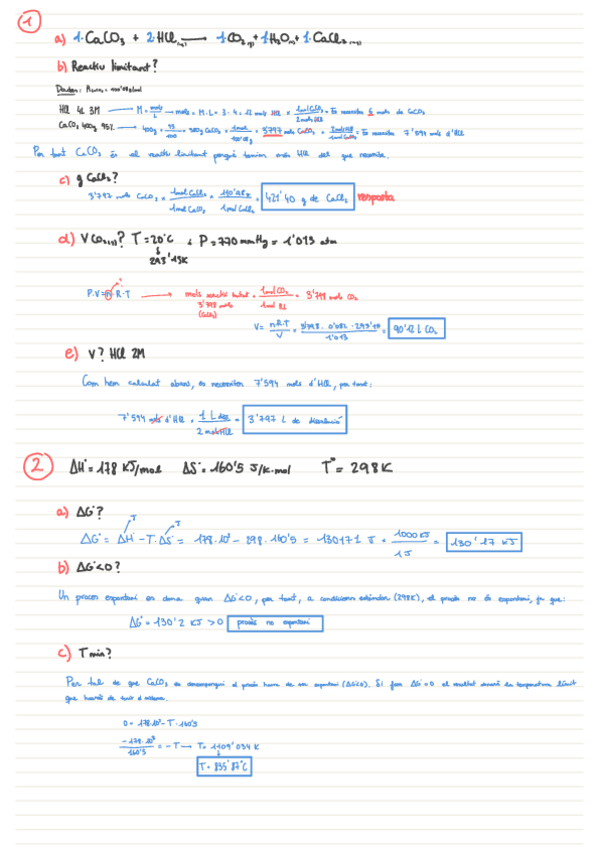 1
a) 1·CaCO3 + 2·HCl(aq) → 1·CO2(g) + 1·H2O(l) + 1·CaCl2(aq)
b) Reactiu limitant?
HCl 4L 3M → M = mols/L → mols = M·L = 3·4 = 12 mols HCl × 1mol CaCO3/2mols HCl = Es necessiten 6 mols de CaCO3
CaCO3 400g 95% → 400g · 95/100 = 380g CaCO3 · 1mol = 3'797 mols CaCO3 · 2mols HCl = Es necessiten 7'594 mols d'HCl
Per tant CaCO3 és el reactiu limitant perquè tenim més HCl del que necessita.
c) g CaCl2?
3'797 mols CaCO3 · 1mol CaCl2/1mol CaCO3 · /1mol CaCl2 = 421'40 g de CaCl2 resposta
d) V CO2(g)? T = 20°C i P = 770 mmHg = 1'013 atm
293'15K
P·V = n·R·T → mols reactiu limitant · 1mol CO2 = 3'798 mols CO2
3'798 mols
V = n·R·T/V = 3'798 · 0'082 · /1'013 = 90'12 L CO2
e) V? HCl 2M
Com hem calculat abans, es necessiten 7'594 mols d'HCl, per tant:
7'594 mols d'HCl · 1 L diss/2 mols HCl = 3'797 L de dissolució
2 ΔH° = 178 KJ/mol ΔS° = 160'5 J/K·mol T° = 298K
a) ΔG°?
J J
ΔG° = ΔH° - T·ΔS° = 178·10³ - 298·160'5 = 130171 J · 1000KJ/1J = 130'17 KJ
b) ΔG°<0?
Un procés espontani en dona quan ΔG°<0, per tant, a condicions estàndar (298K), el procés no és espontani, ja que:
ΔG° = 130'2 KJ > 0 procés no espontani
c) T min?
Per tal de que CaCO3 es descompongui el procés haurà de ser espontani (ΔG°<0). Si fem ΔG° = 0 el resultat donarà la temperatura límit
que haurà de tenir el sistema.
0 = 178·10³ - T·160'5
-178·10³/160'5 = -T → T = 1109'034 K
T = 835'87°C